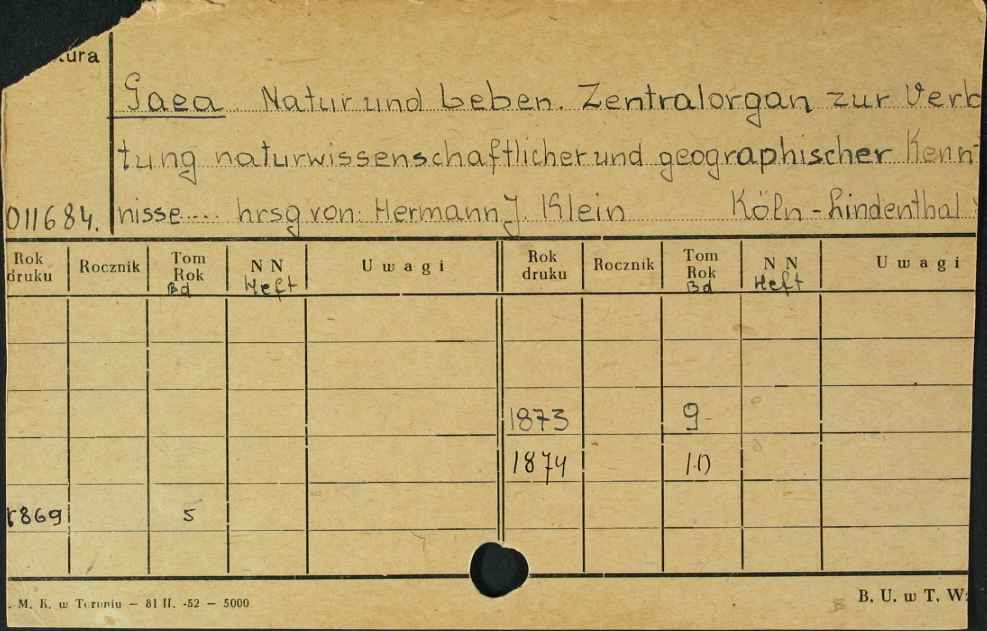 tura
Gaea. Natur und Leben. Zentralorgan zur Verb
tung naturwissenschaftlicher und geographischer Kennt
011684. nisse.... hrsg von: Hermann J. Klein Köln-Lindenthal
Rok druku Rocznik Tom Rok Bd NN Heft Uwagi Rok druku Rocznik Tom Rok Bd NN Heft Uwagi
1873 9
1874 10
1869 5
. M. K. w Toruniu — 81 II. -52 — 5000 B. U. w T. W: